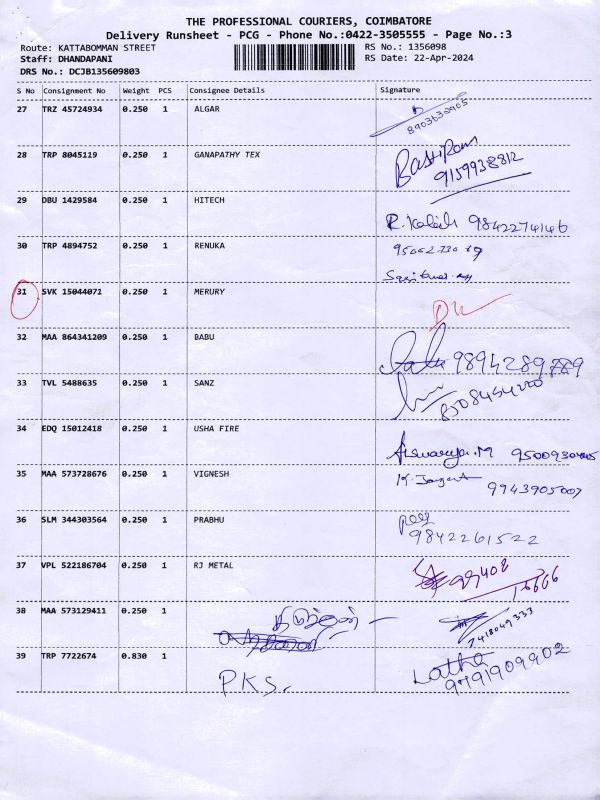 THE PROFESSIONAL COURIERS, COIMBATORE
Delivery Runsheet - PCG - Phone No.:0422-3505555 - Page No.:3
Route: KATTABOMMAN STREET RS No.: 1356098
Staff: DHANDAPANI RS Date: 22-Apr-2024
DRS No.: DCJB135609803
S No Consignment No Weight PCS Consignee Details Signature
27 TRZ 45724934 0.250 1 ALGAR
8903630905
28 TRP 8045119 0.250 1 GANAPATHY TEX
9159938812
29 DBU 1429584 0.250 1 HITECH
R. Kalaik 9842274146
30 TRP 4894752 0.250 1 RENUKA
31 SVK 15044071 0.250 1 MERURY
32 MAA 864341209 0.250 1 BABU
9894289789
33 TVL 5488635 0.250 1 SANZ
34 EDQ 15012418 0.250 1 USHA FIRE
Aiswarya.M
35 MAA 573728676 0.250 1 VIGNESH
9943905007
36 SLM 344303564 0.250 1 PRABHU
9842261522
37 VPL 522186704 0.250 1 RJ METAL
38 MAA 573129411 0.250 1
7418049333
39 TRP 7722674 0.830 1
PKS.
Latha
9791909902